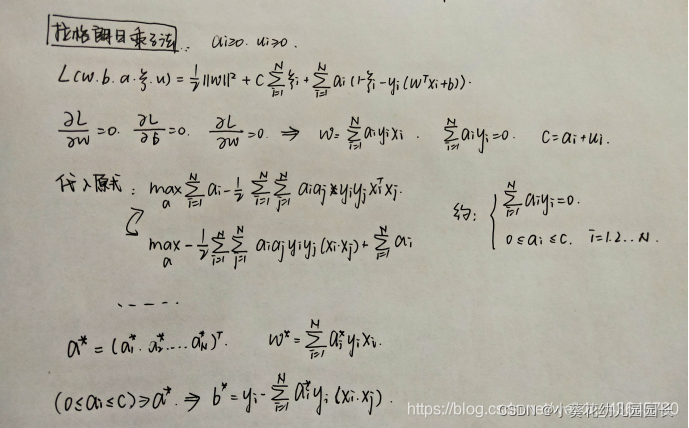 拉格朗日乘子法: ai≥0. ui≥0.
L(w.b.a.ξ.u) = 1/2||w||² + C∑_{i=1}^{N}ξi + ∑_{i=1}^{N} ai(1-ξi-yi(wᵀxi+b)).
∂L/∂w=0. ∂L/∂b=0. ∂L/∂w=0 ⇒ w=∑_{i=1}^{N}aiyixi. ∑_{i=1}^{N}aiyi=0. C=ai+ui.
代入原式: max_a ∑_{i=1}^{N}ai-1/2 ∑_{i=1}^{N}∑_{j=1}^{N} aiaj*yiyjxiᵀxj. 约: { ∑_{i=1}^{N}aiyi=0.
max_a -1/2∑_{i=1}^{N}∑_{j=1}^{N} aiajyiyj(xi·xj)+∑_{i=1}^{N}ai 0≤ai≤C. i=1.2...N.
......
a*=(a1*.a2*....aN*)ᵀ. w*=∑_{i=1}^{N}ai*yixi.
(0≤ai≤C)⇒a*. ⇒ b*=yj-∑_{i=1}^{N}ai*yi(xi·xj).
CSDN @小葵花幼儿园园长